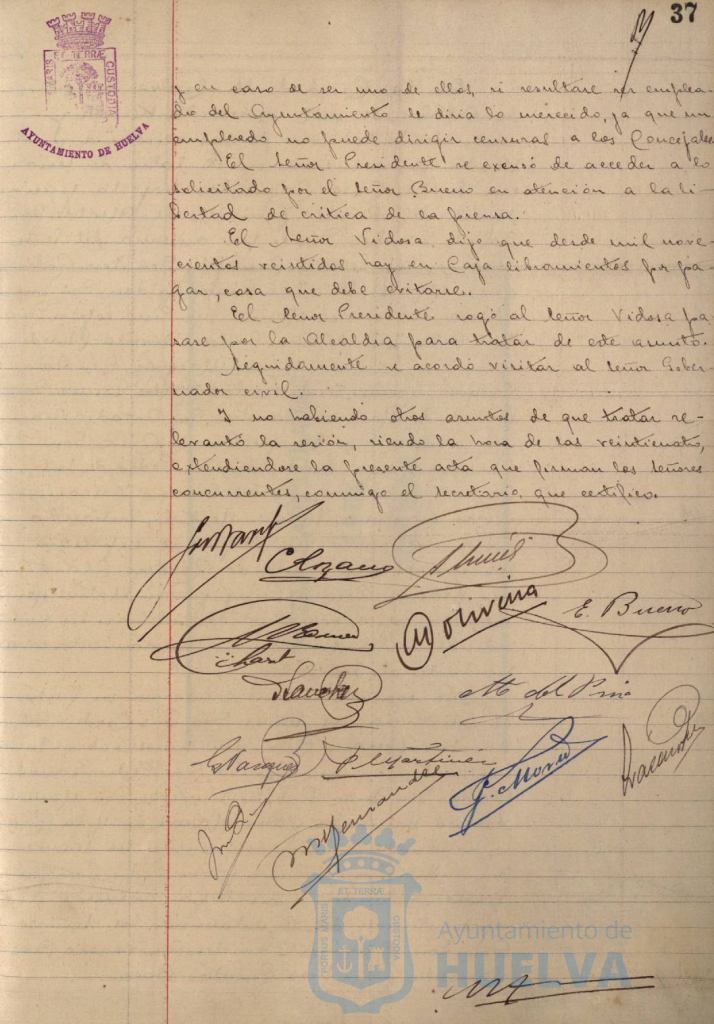 37
PORTUS MARIS ET TERRÆ CUSTODIA
AYUNTAMIENTO DE HUELVA
y en caso de ser uno de ellos, si resultare ser emplea-
do del Ayuntamiento se diria lo merecido, ya que un
empleado no puede dirigir censuras a los Concejales.
El Señor Presidente se excusó de acceder a lo
solicitado por el Señor Bueno en atención a la li-
bertad de crítica de la prensa.
El Señor Vidosa dijo que desde mil nove-
cientos veintidos hay en Caja libramientos por pa-
gar, cosa que debe evitarse.
El Señor Presidente rogó al Señor Vidosa pa-
sase por la Alcaldía para tratar de este asunto.
Seguidamente se acordó visitar al Señor Gober-
nador civil.
Y no habiendo otros asuntos de que tratar se
levantó la sesión, siendo la hora de las veinticuatro,
extendiendose la presente acta que firman los Señores
concurrentes, conmigo el secretario, que certifico.
C Lozano
M Oliveira
E. Bueno
Sanchez
M. del Pino
G Vazquez
P Martinez
M Hernandez
G. Mora
PORTUS MARIS ET TERRÆ CUSTODIA
Ayuntamiento de
HUELVA